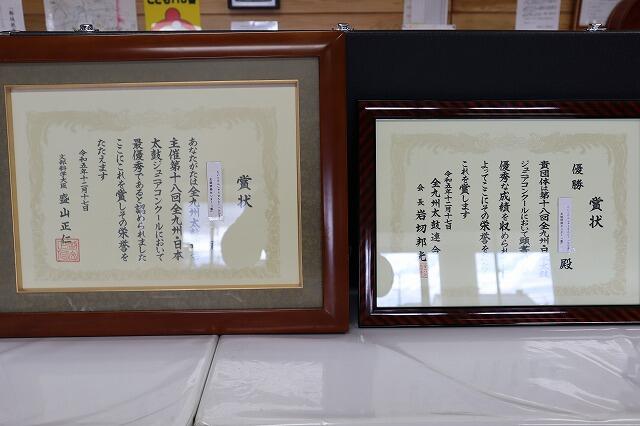 賞状
あなたがたは全九州太鼓
主催第十八回全九州・日本
太鼓ジュニアコンクールにおいて
最優秀であると認められました
ここにこれを賞しその栄誉を
たたえます
令和五年十二月十七日
文部科学大臣 盛山正仁
賞状
優勝
殿
貴団体は第十八回全九州日本
ジュニアコンクールにおいて頭書
優秀な成績を収められ
よってここにその栄誉を
これを賞します
令和五年十二月十七日
全九州太鼓連合
会長 岩切邦光